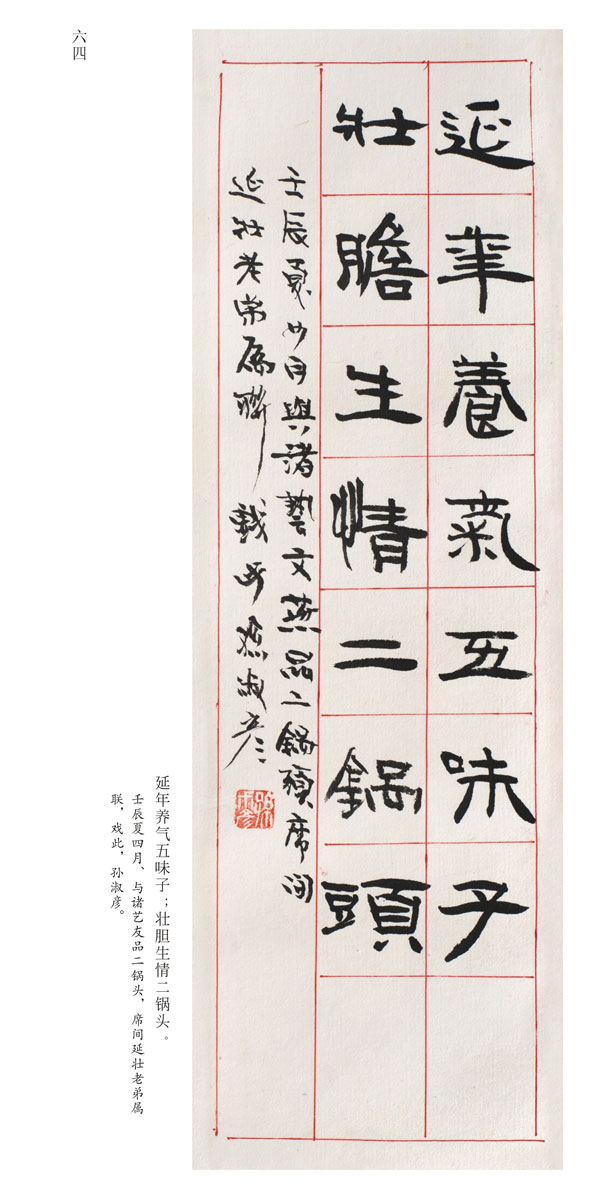 延年養氣五味子
壯膽生情二鍋頭
壬辰夏四月與諸藝友燕品二鍋頭席间
延壯老弟属聯 戲此 孫淑彦
延年养气五味子；壮胆生情二锅头。
壬辰夏四月、与诸艺友品二锅头，席间延壮老弟属
联，戏此，孙淑彦。
六四